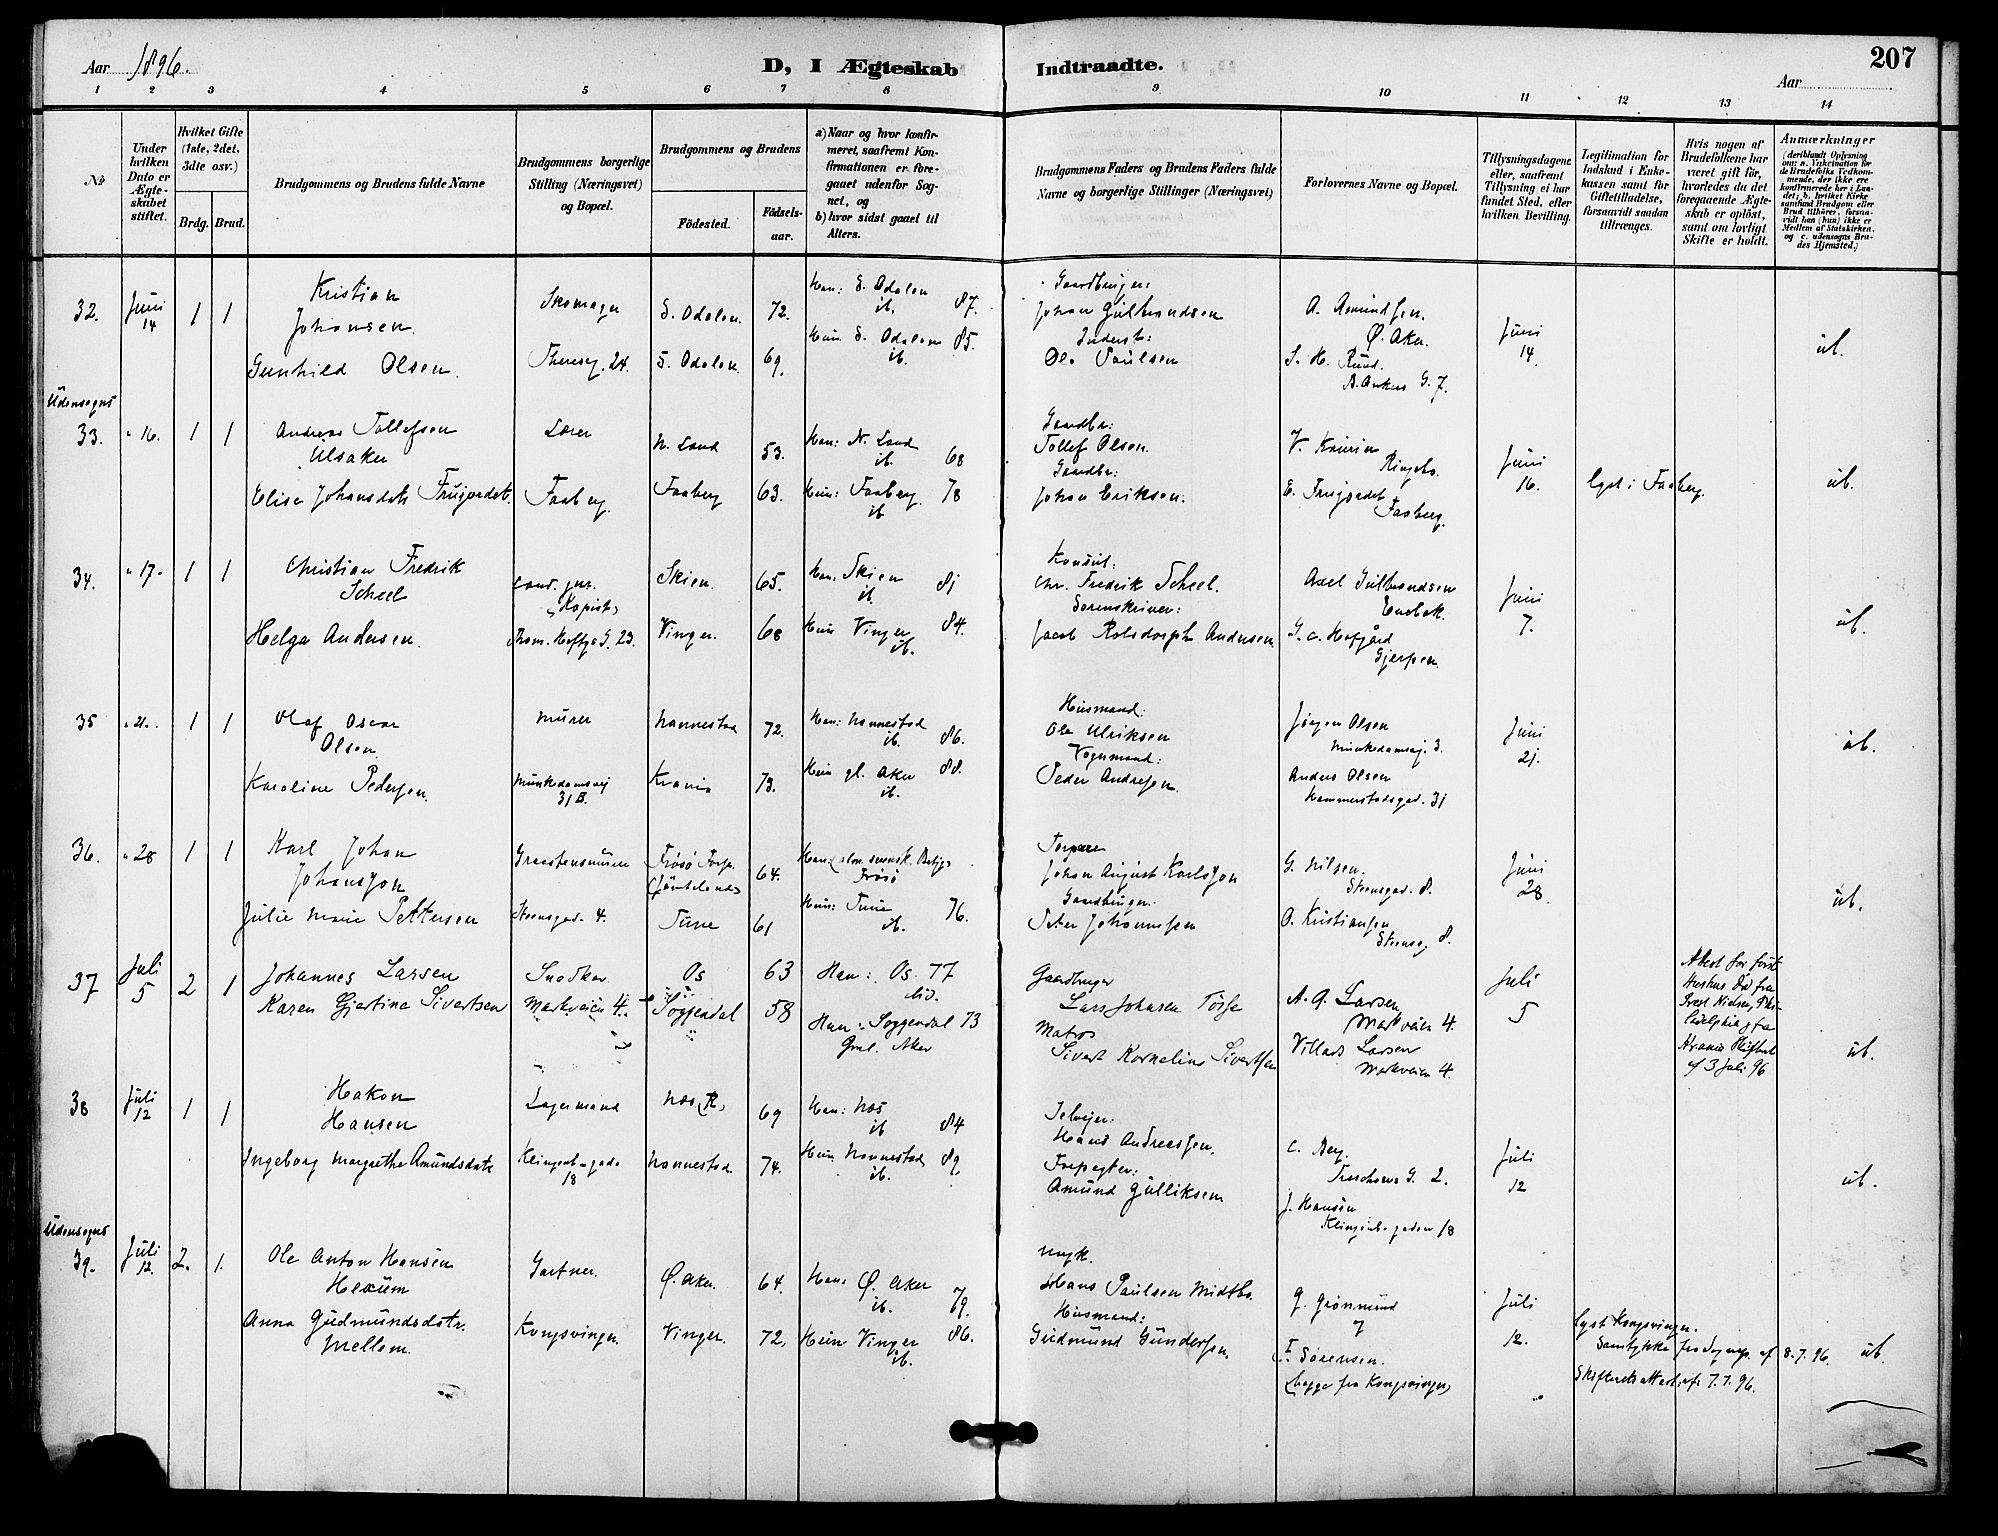 Aar 1896.
D, I Ægteskab Indtraadte.
207
Aar
1 2 3 4 5 6 7 8 9 10 11 12 13 14
№
Under hvilken Dato er Ægteskabet stiftet.
Hvilket Gifte (1ste, 2det, 3dte osv.)
Brdg. Brud.
Brudgommens og Brudens fulde Navne
Brudgommens borgerlige Stilling (Næringsvei) og Bopæl.
Brudgommens og Brudens
Fødested. Fødselsaar.
a) Naar og hvor konfirmeret, saafremt Konfirmationen er foregaaet udenfor Sognet, og
b) hvor sidst gaaet til Alters.
Brudgommens Faders og Brudens Faders fulde Navne og borgerlige Stillinger (Næringsvei)
Forlovernes Navne og Bopæl.
Tillysningsdagene eller, saafremt Tillysning ei har fundet Sted, efter hvilken Bevilling.
Legitimation for Indskud i Enkekassen samt for Giftetilladelse, forsaavidt saadan tiltrænges.
Hvis nogen af Brudefolkene har været gift før, hvorledes da det foregaaende Ægteskab er opløst, samt om lovligt Skifte er holdt.
Anmærkninger
(deriblandt Oplysning om: a. Vakcination for de Brudefolks Vedkommende, der ikke ere konfirmerede her i Landet; b. hvilket Kirkesamfund Brudgom eller Brud tilhører, forsaavidt han (hun) ikke er Medlem af Statskirken, og c. udensogns Brudes Hjemsted.)
32. Juni 14 1 1 Kristian Johansen. Skomager S. Odalen. 72. Han: S. Odalen ib. 87. Gaardbruger: Johan Gulbrandsen A. Amundsen. Ø. Aker. Juni 14. ub.
Gunhild Olsen. Theresg. 24. S. Odalen. 69. Hun S. Odalen ib. 85. Inderst: Ole Paulsen S. H. Rund. B. Ankers G. 7.
Udensogns
33. " 16. 1 1 Andreas Tollefsen Ulsaker Lærer N. Land 53. Han: N. Land ib. 68 Gaardbr: Tollef Olsen. Ringebo. Juni 16. Lyst i Faaberg. ub.
Elise Johansdatr Frugjordet. Faaberg. Faaberg 63. Hun: Faaberg. ib 78 Gaardbr: Johan Eriksen. E. Frugjordet Faaberg.
34. " 17. 1 1 Christian Fredrik Scheel cand. jur. (Kopist) Skien. 65. Han: Skien ib. 81 Konsul: Chr. Fredrik Scheel. Axel Gulbrandsen Enebak. Juni 7. ub.
Helga Andersen. Thom. Heftyes G. 23. Vinger. 68 Hun Vinger ib. 84. Sorenskriver: Jacob Rolsdorph Andersen G. C. Hofgård Gjerpen.
35 " 21. 1 1 Olaf Oscar Olsen. Murer Nannestad 72. Han: Nannestad ib. 86. Husmand: Ole Ulriksen Jørgen Olsen Munkedamsvj. 3. Juni 21. ub.
Karoline Pedersen. Munkedamsvej 31 B. Krania 73. Hun gl. Aker ib. 88. Vognmand: Peder Andresen. Anders Olsen Hammerstadsgad. 31
36. " 28 1 1 Karl Johan Johansson Graastensmurer Frösö Forsa. (Jämteland) 64. Han: Frösö Torpare Johan August Karlsson G. Nilsen. Steensgad. 8. Juni 28. ub.
Julie Marie Pettersen Steensgad. 4. Tune 61 Hun: Tune ib. 76. Gaardbruger. Peter Johannessen O. Kristiansen Steensg 8.
37 Juli 5 2 1 Johannes Larsen Snedker Os 63 Han: Os. 77 Gaardbruger Lars Johnsen Tøsse A. G. Larsen Markveien 4. Juli 5 Attest for første Hustrus Død fra Præst Nielsen, Philadelphia, fra Krania Skifteret af 3 Juli 96 ub.
Karen Gjertine Sivertsen Markveien 4. Soggendal 58 Hun: Soggendal 73 Gml. Aker Matros Sivert Kornelius Sivertsen Villads Larsen Markveien 4.
38 Juli 12 1 1 Hakon Hansen Lagermand Næs (R) 69 Han: Næs ib 84 Selveier. Hans Andreassen. C. Berg. Treschows G. 2. Juli 12 ub.
Ingeborg Margrethe Amundsdatr Klingenb-gade 18 Nannestad. 74. Hun Nannestad ib. 89. Forpagter: Amund Gulliksen J. Hansen Klingenb-gaden 18
Udensogns
39. Juli 12. 2. 1. Ole Anton Hansen Hexum Gartner. Ø. Aker. 64. Han: Ø. Aker ib. 79. Hans Paulsen Midtbo. G. Grønmund Juli 12. Lyst Kongsvinger. Samtykke fra 8.7.96. ub.
Anna Gudmundsdatr. Mellem. Kongsvinger. Vinger. 72. Hun Vinger ib. 86. Husmand: Gudmund Gundersen. F. Sørensen. (begge fra Kongsvinger) Skifteretsattest af 7.7.96.